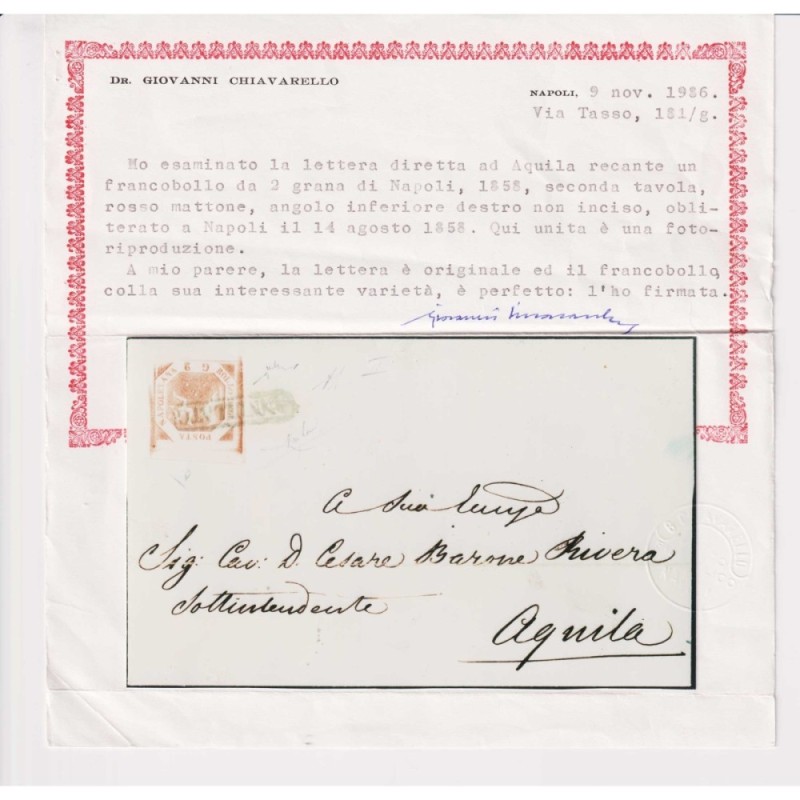 DR. GIOVANNI CHIAVARELLO
NAPOLI, 9 nov. 1986.
Via Tasso, 181/g.
Ho esaminato la lettera diretta ad Aquila recante un
francobollo da 2 grana di Napoli, 1858, seconda tavola,
rosso mattone, angolo inferiore destro non inciso, obli-
terato a Napoli il 14 agosto 1858. Qui unita è una foto-
riproduzione.
A mio parere, la lettera è originale ed il francobollo,
colla sua interessante varietà, è perfetto: l'ho firmata.
Giovanni
G 2
NAPOLETANA
POSTA
A Sua
Sig: Cav: D. Cesare Barone Rivera
Sottintendente
Aquila